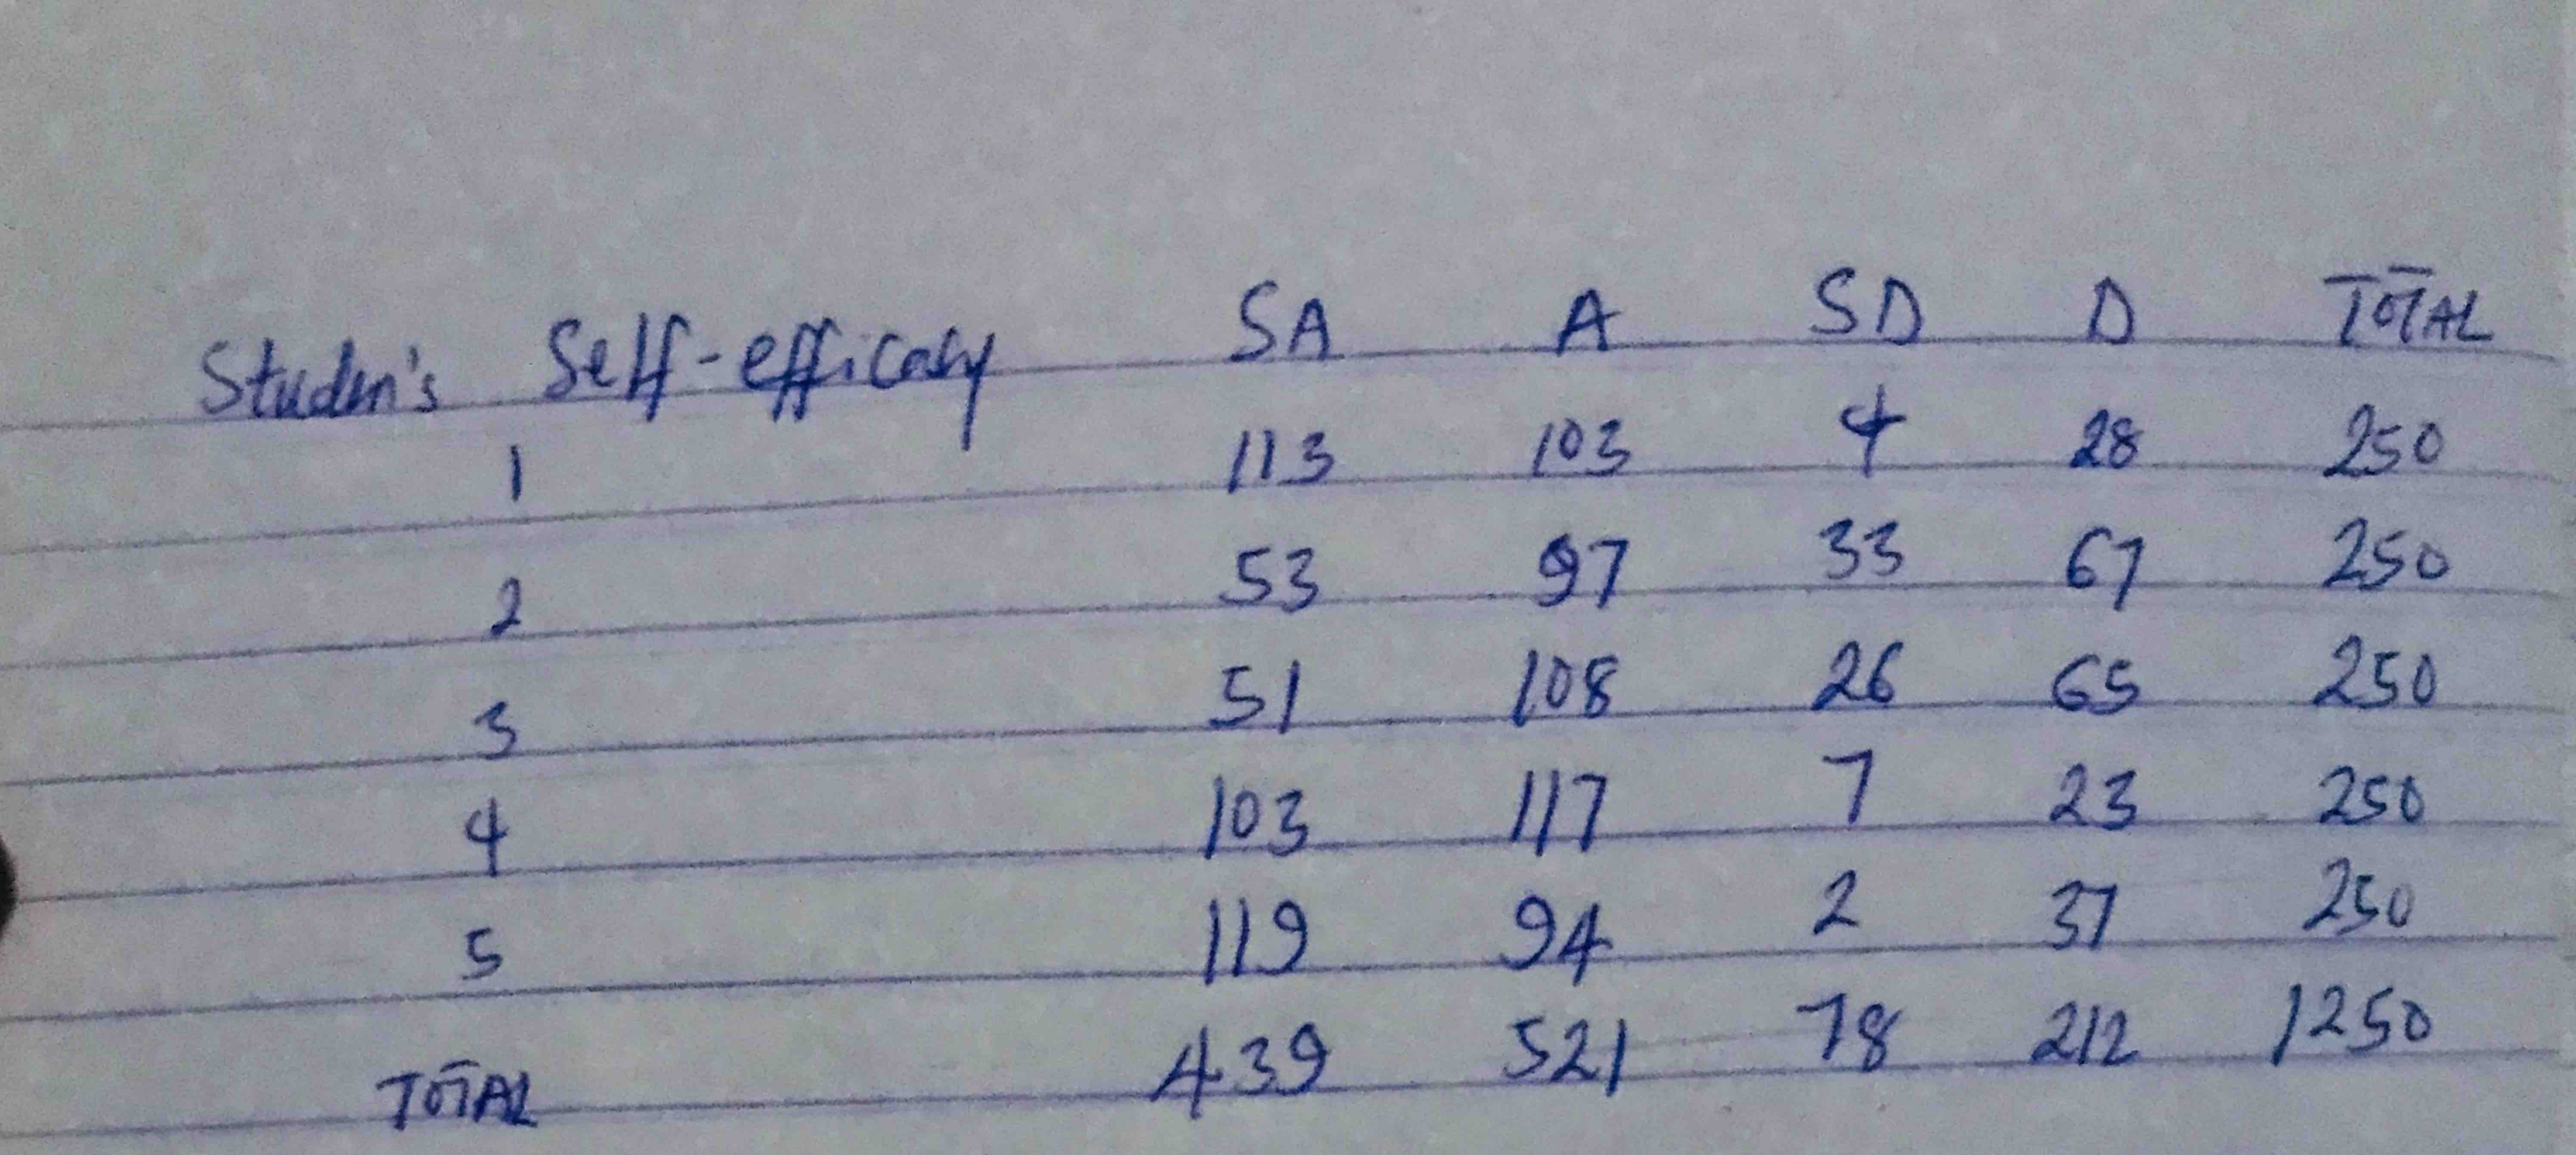 Studen's Self-efficacy SA A SD D TOTAL
1 113 103 4 28 250
2 53 97 33 67 250
3 51 108 26 65 250
4 103 117 7 23 250
5 119 94 2 37 250
TOTAL 439 521 78 212 1250